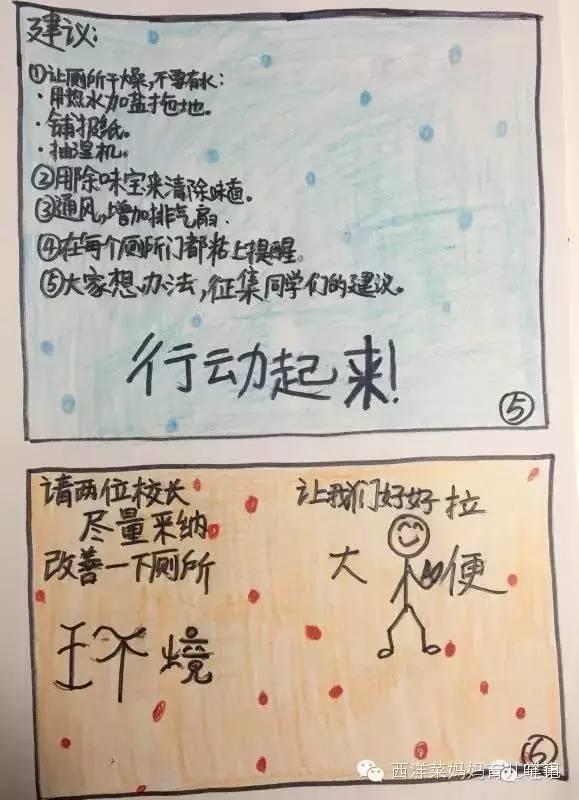 建议:
①让厕所干燥,不要有水:
·用热水加盐拖地。
·铺报纸。
·抽湿机。
②用除味宝来清除味道。
③通风,增加排气扇.
④在每个厕所门都粘上提醒。
⑤大家想办法,征集同学们的建议。
行动起来!
⑤
请两位校长
尽量采纳
改善一下厕所
环境
让我们好好拉
大便
⑥
西洋菜妈妈育儿